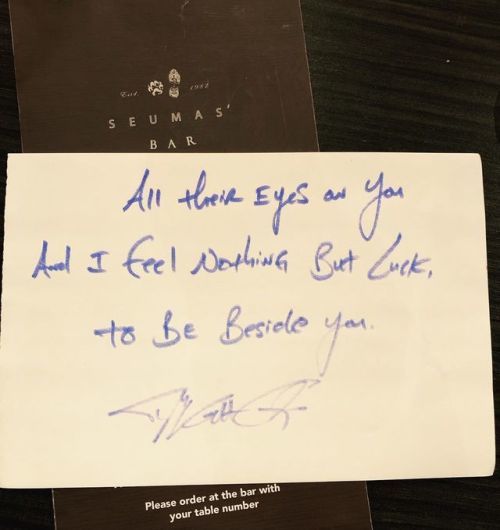 Est. 1982
SEUMAS'
BAR
All their Eyes on You
And I feel Nothing But Luck,
to Be Beside you.
Please order at the bar with
your table number